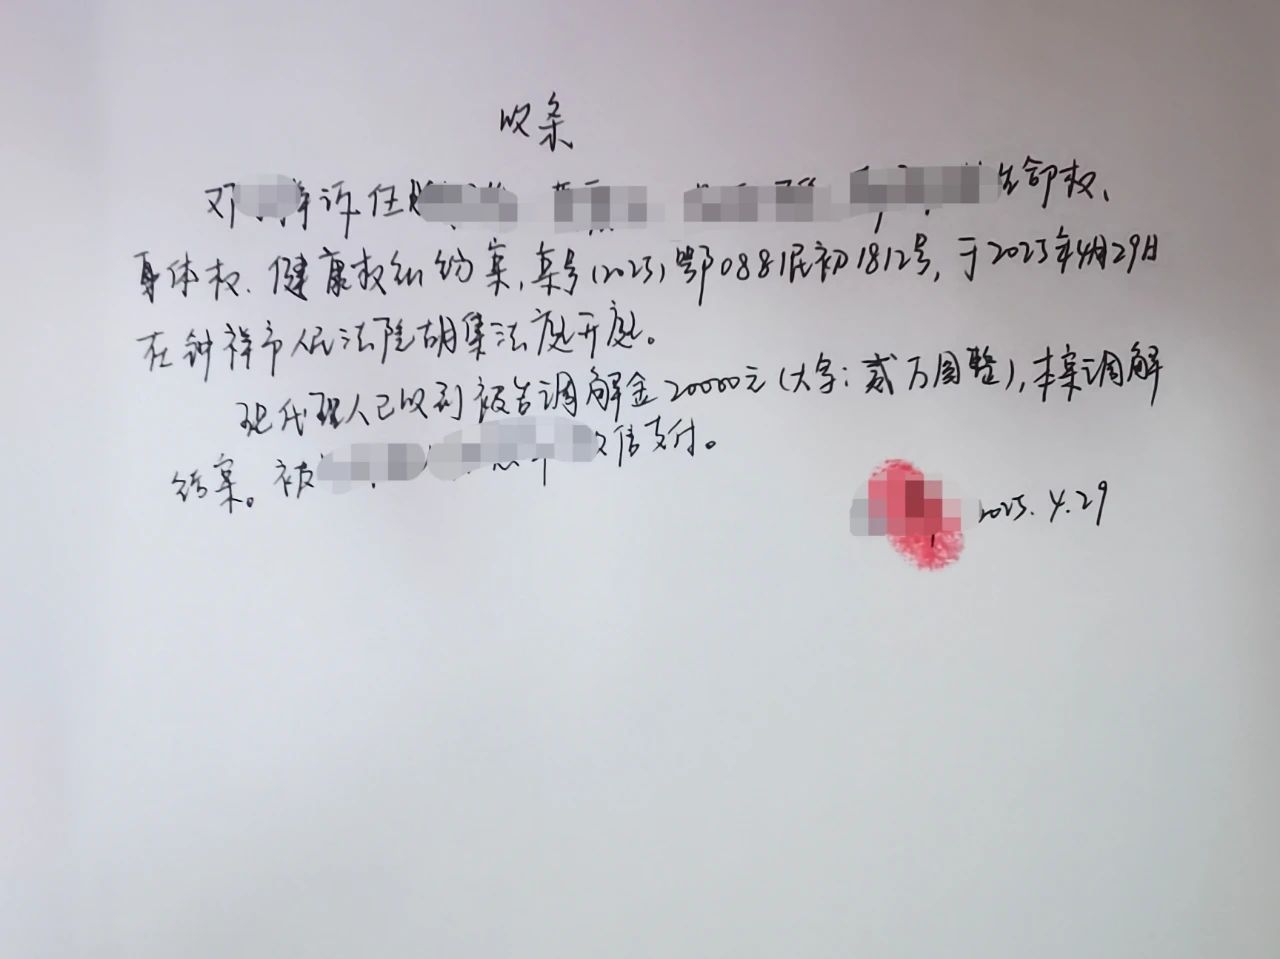 收条
邓 诉任 命权、
身体权、健康权纠纷案,案号(2025)鄂0881民初1812号,于2025年4月29日
在钟祥市人民法院胡集法庭开庭。
现代理人已收到被告调解金20000元(大字:贰万圆整),本案调解
结案。被 信支付。
2025.4.29